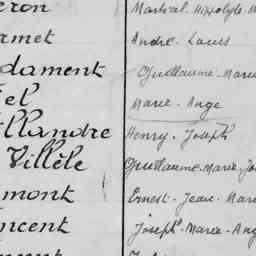 éron Martial. Hippolyte. M
rmet André. Louis
dament Guillaume. Marie
el Marie. Ange
llandre Henry. Joseph
Villèle Guillaume. Marie. Jo
mont Ernest. Jean. Mari
ncent Joseph. Marie. Ang